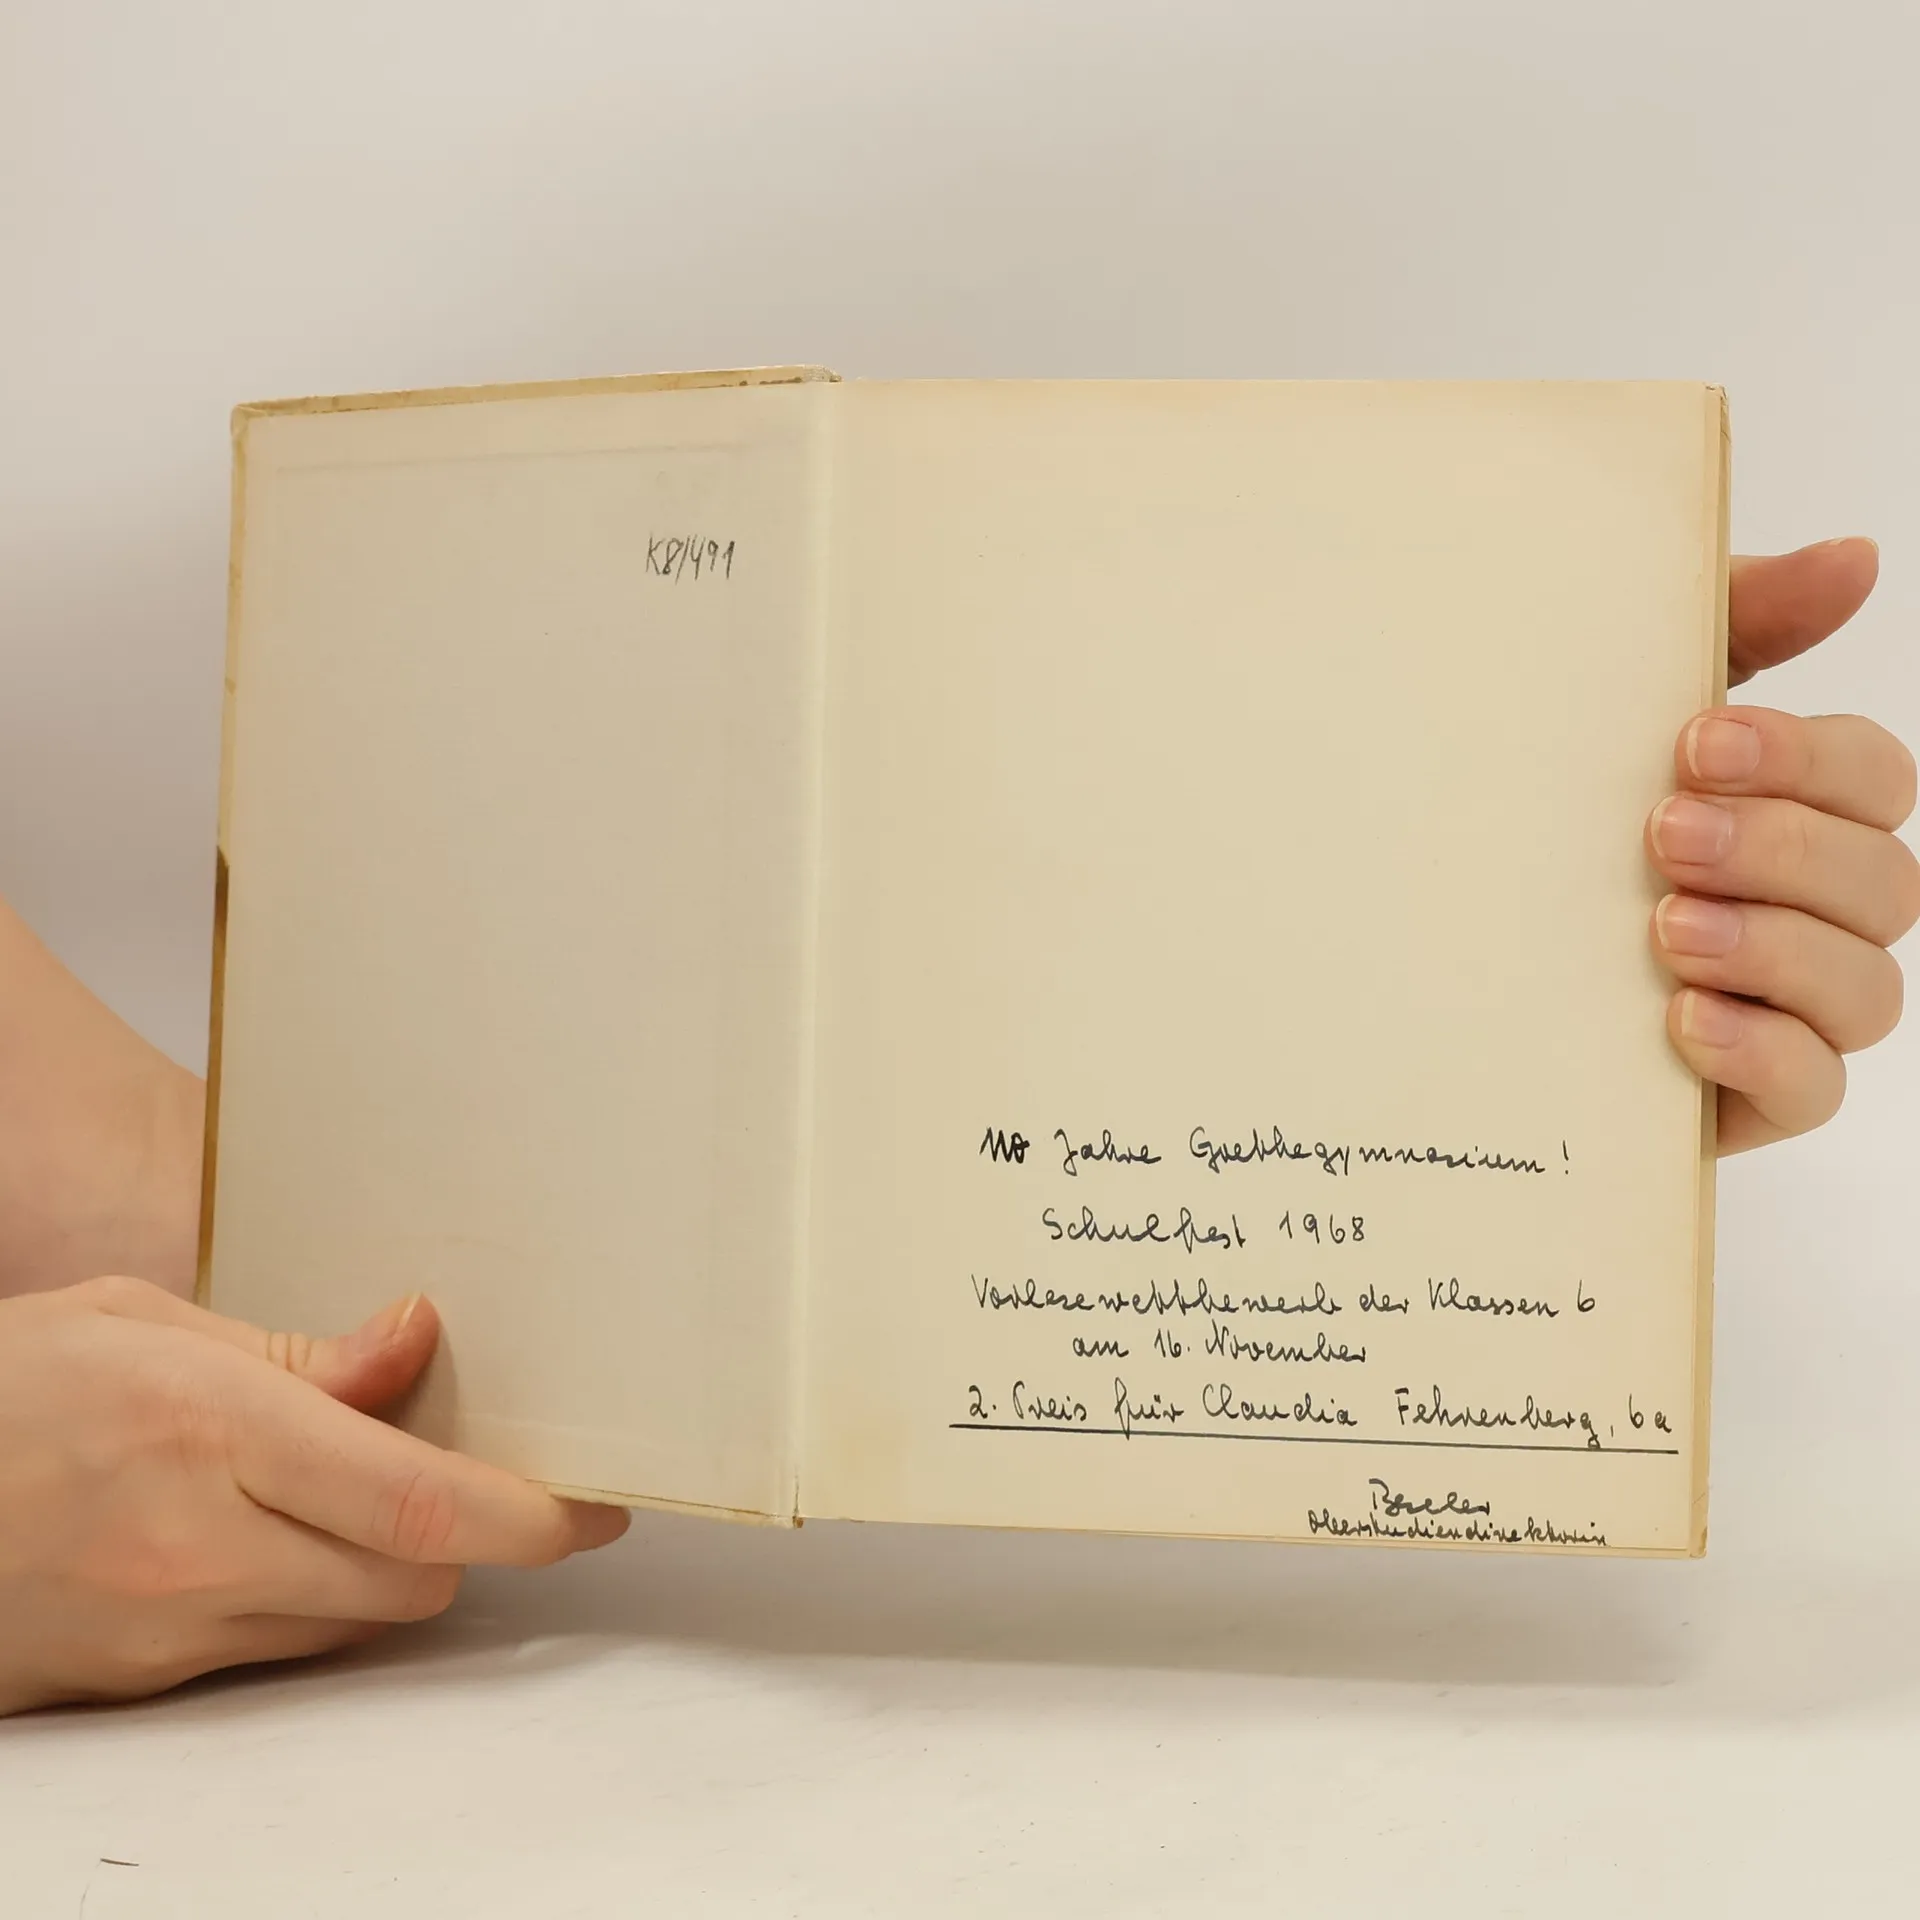 K8/491
110 Jahre Goethegymnasium!
Schulfest 1968
Vorlesewettbewerb der Klassen 6
am 16. November
2. Preis für Claudia Fehrenberg, 6a
Beseler
Oberstudiendirektorin